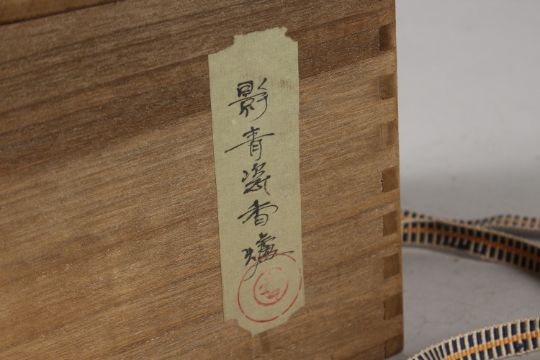 影青瓷香爐